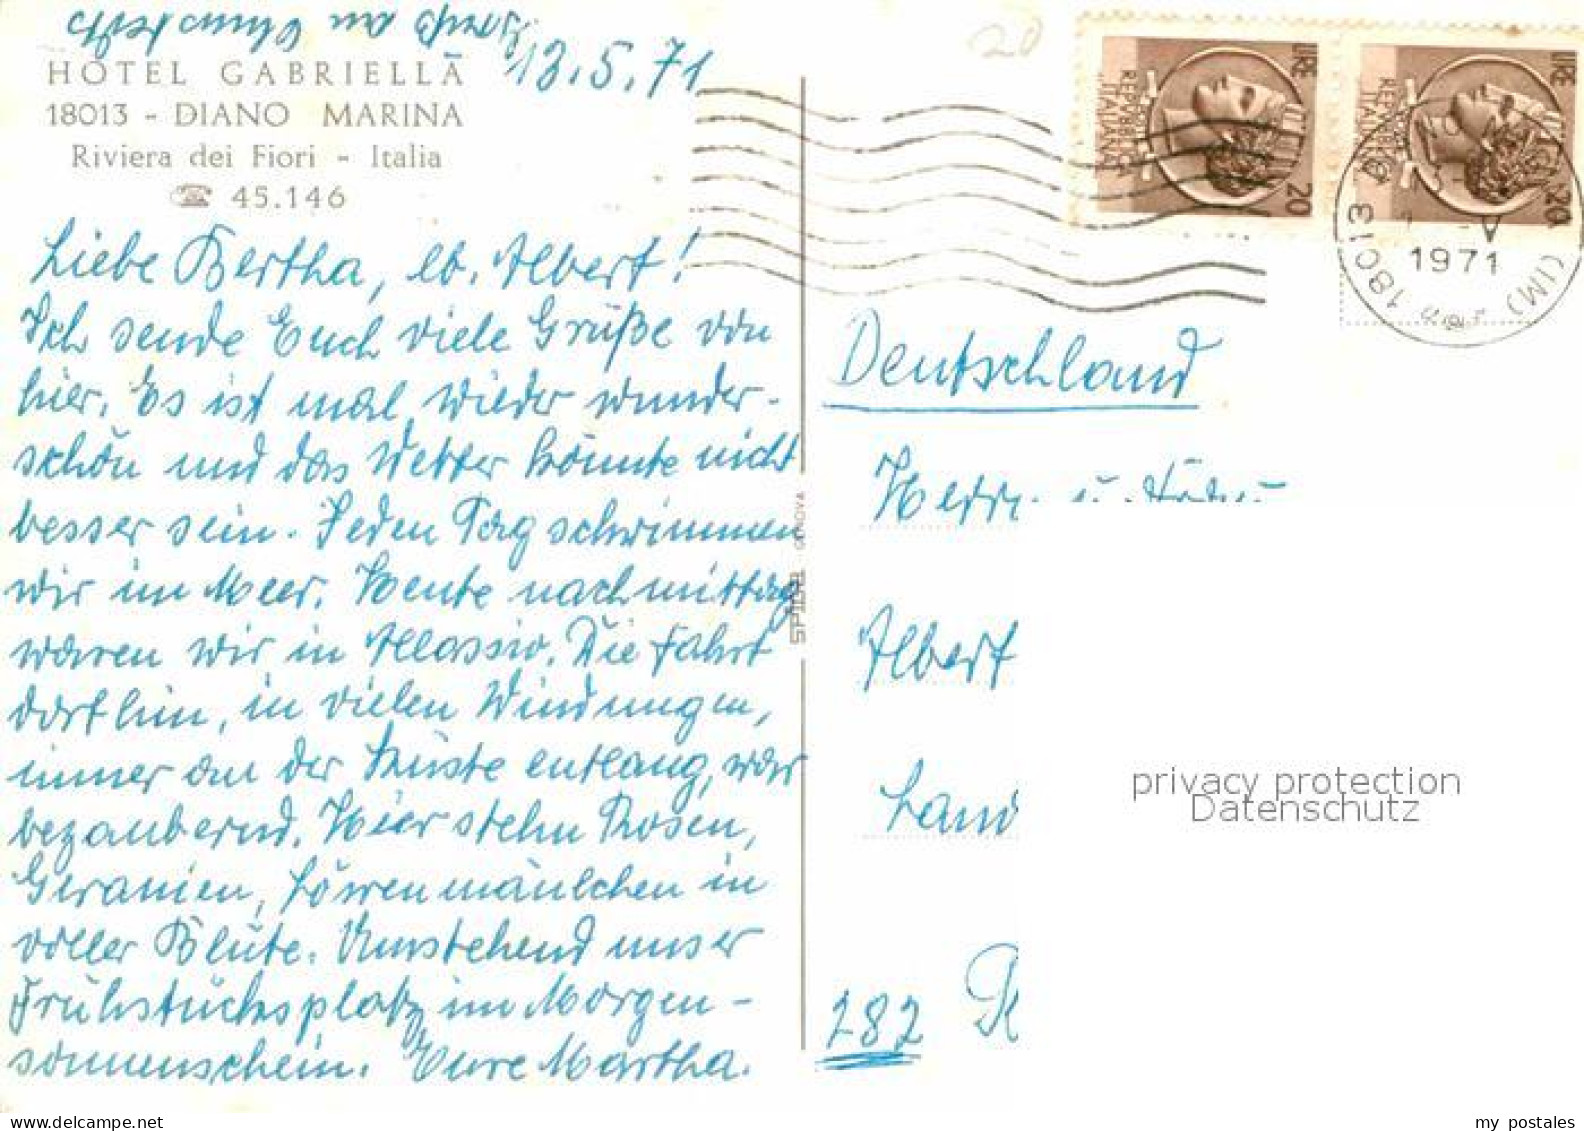 HOTEL GABRIELLA
18013 - DIANO MARINA
Riviera dei Fiori - Italia
☎ 45.146
13.5.71
Liebe Bertha, lb. Albert!
Ich sende Euch viele Grüße von
hier. Es ist mal wieder wunder-
schön und das Wetter könnte nicht
besser sein. Jeden Tag schwimmen
wir im Meer. Heute nachmittag
waren wir in Allassio. Die Fahrt
dorthin, in vielen Windungen,
immer an der Küste entlang, war
bezaubernd. Hier stehn Rosen,
Geranien, Löwenmäulchen in
voller Blüte. Umstehend unser
Frühstücksplatz im Morgen-
sonnenschein. Eure Martha.
SPIGA GENOVA
20
LIRE
REPUBBLICA
ITALIANA
20
LIRE
REPUBBLICA
ITALIANA
20
18013
1971
(IM)
Deutschland
Herrn u. Frau
Albert
Land
282 R
privacy protection
Datenschutz
my postales